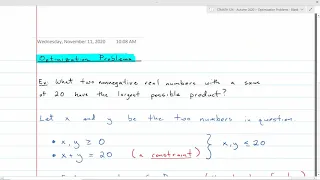 Wednesday, November 11, 2020 10:08 AM
Optimization Problems
Ex: What two nonnegative real numbers with a sum
of 20 have the largest possible product?
Let x and y be the two numbers in question.
• x, y ≥ 0
• x + y = 20 (a constraint) } x, y ≤ 20